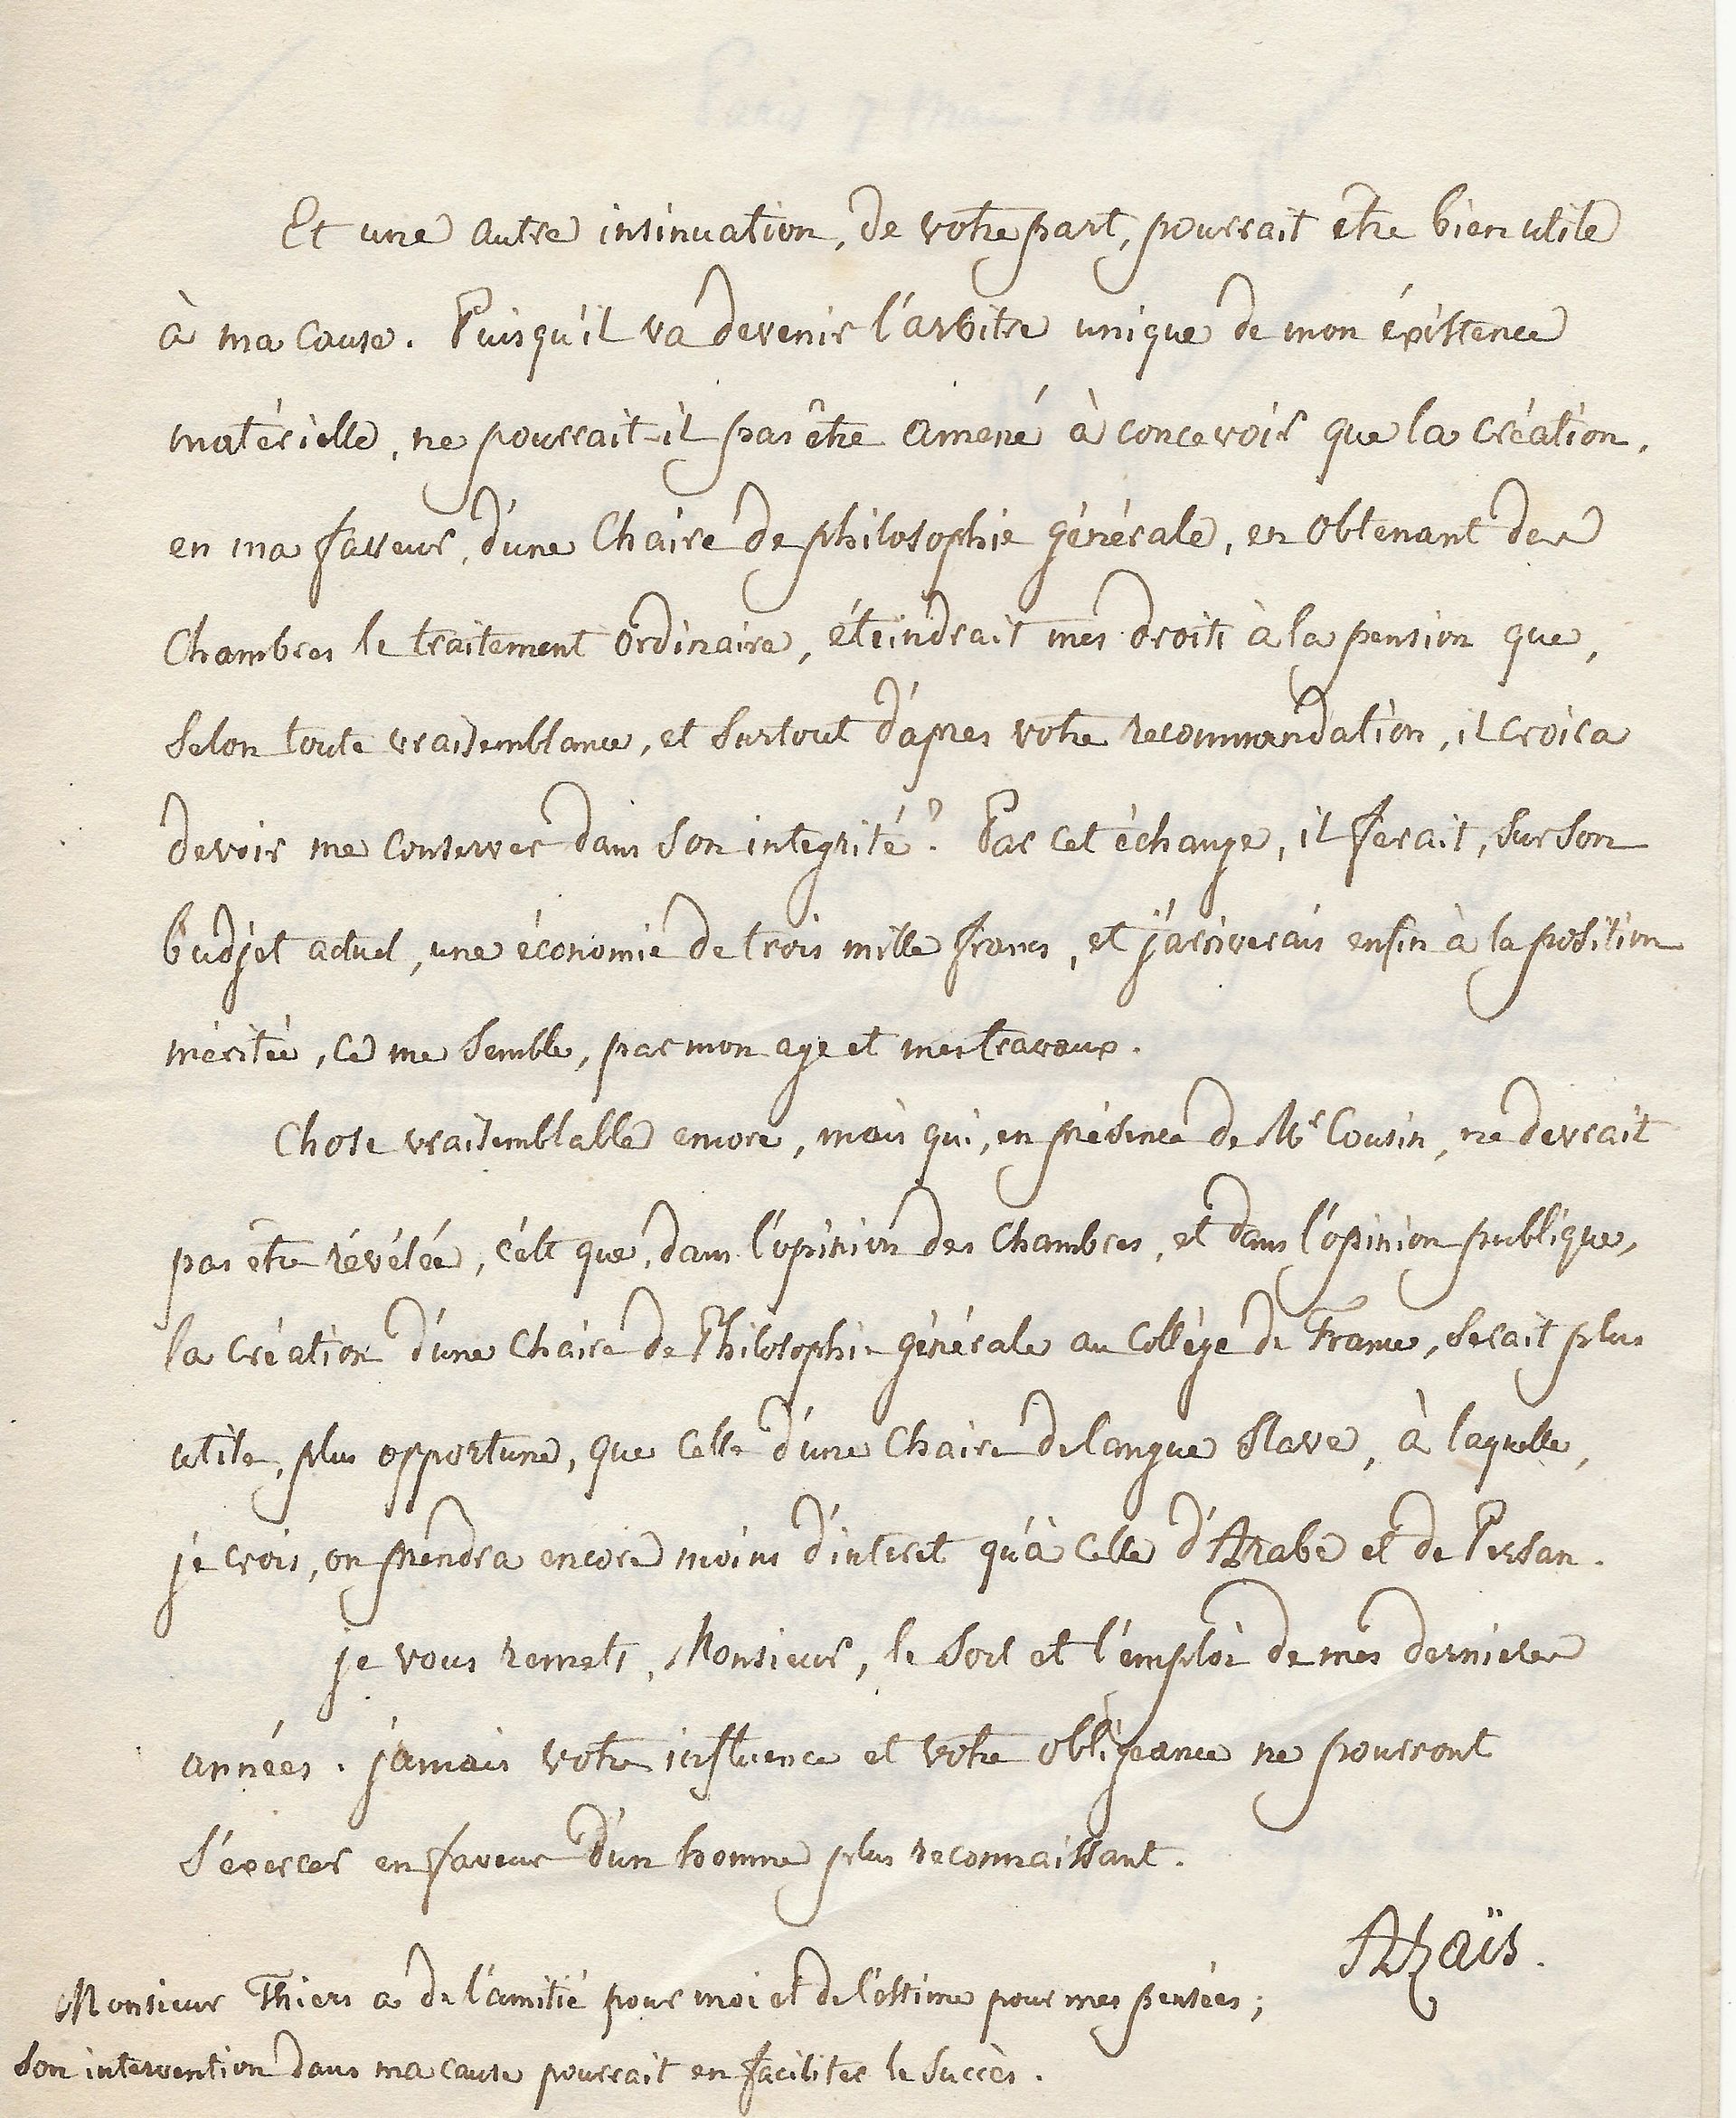 Et une autre insinuation, de votre part, pourrait etre bien utile
à ma cause. Puisqu'il va devenir l'arbitre unique de mon éxistence
matérielle, ne pourrait-il pas être amené à concevoir que la création,
en ma faveur, d'une Chaire de philosophie générale, en obtenant des
Chambres le traitement ordinaire, éteindrait mes droits à la pension que,
selon toute vraisemblance, et surtout d'après votre recommandation, il croira
devoir me conserver dans son integrité? Par cet échange, il ferait, sur son
budjet actuel, une économie de trois mille francs, et j'arriverais enfin à la position
méritée, ce me semble, par mon age et mes travaux.
Chose vraisemblable encore, mais qui, en présence de Mr Cousin, ne devrait
pas être révélée, c'est que, dans l'opinion des Chambres, et dans l'opinion publique,
la création d'une Chaire de Philosophie générale au Collège de France, serait plus
utile, plus opportune, que celle d'une Chaire de langue Slave, à laquelle,
je crois, on prendra encore moins d'interet qu'à celle d'Arabe et de Persan.
je vous remets, Monsieur, le sort et l'emploi de mes dernieres
années. jamais votre influence et votre obligeance ne pourront
s'éxercer en faveur d'un homme plus reconnaissant.
Azaïs.
Monsieur Thiers a de l'amitié pour moi et de l'estime pour mes pensées;
son intervention dans ma cause pourrait en faciliter le succès.